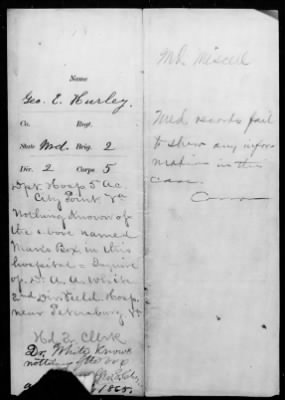 Name
Geo. E. Hurley.
Co. Regt.
State Md. Brig. 2
Div. 2 Corps 5
Dpt Hosp 5 A.C.
City Point Va
Nothing Known of
the above named
Man's Box in this
hospital - Inquire
of Dr. A. A. White
2nd Div Field Hosp.
near Petersburg Va
Hd Q. Clerk
Dr. White Knows
nothing of the
1865.
Md. Miscell
Med. records fail
to show any infor
mation in this
case.